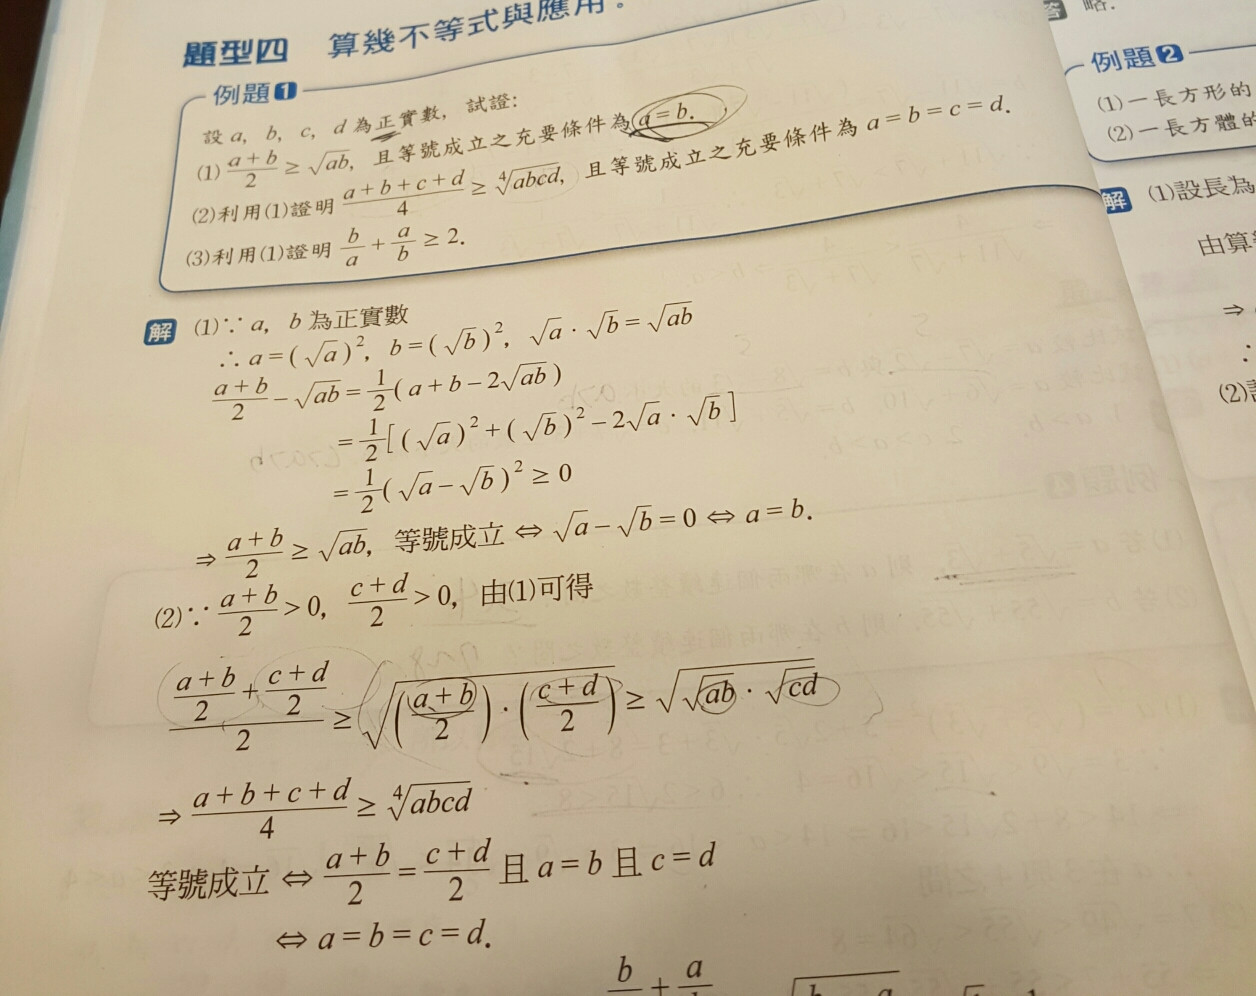 題型四 算幾不等式與應用。
例題1
設 a, b, c, d 為正實數, 試證:
(1) (a+b)/2 ≥ √(ab), 且等號成立之充要條件為 a=b.
(2)利用(1)證明 (a+b+c+d)/4 ≥ ∜(abcd), 且等號成立之充要條件為 a=b=c=d.
(3)利用(1)證明 b/a + a/b ≥ 2.
解 (1)∵ a, b 為正實數
∴ a=(√a)², b=(√b)², √a · √b = √(ab)
(a+b)/2 − √(ab) = 1/2 (a+b−2√(ab))
= 1/2 [(√a)²+(√b)²−2√a · √b]
= 1/2 (√a−√b)² ≥ 0
⇒ (a+b)/2 ≥ √(ab), 等號成立 ⇔ √a−√b=0 ⇔ a=b.
(2)∵ (a+b)/2 > 0, (c+d)/2 > 0, 由(1)可得
((a+b)/2 + (c+d)/2)/2 ≥ √(((a+b)/2) · ((c+d)/2)) ≥ √(√(ab) · √(cd))
⇒ (a+b+c+d)/4 ≥ ∜(abcd)
等號成立 ⇔ (a+b)/2 = (c+d)/2 且 a=b 且 c=d
⇔ a=b=c=d.
答 略.
例題2
(1)一長方形的
(2)一長方體的
解 (1)設長為
由算
⇒
∴
(2)